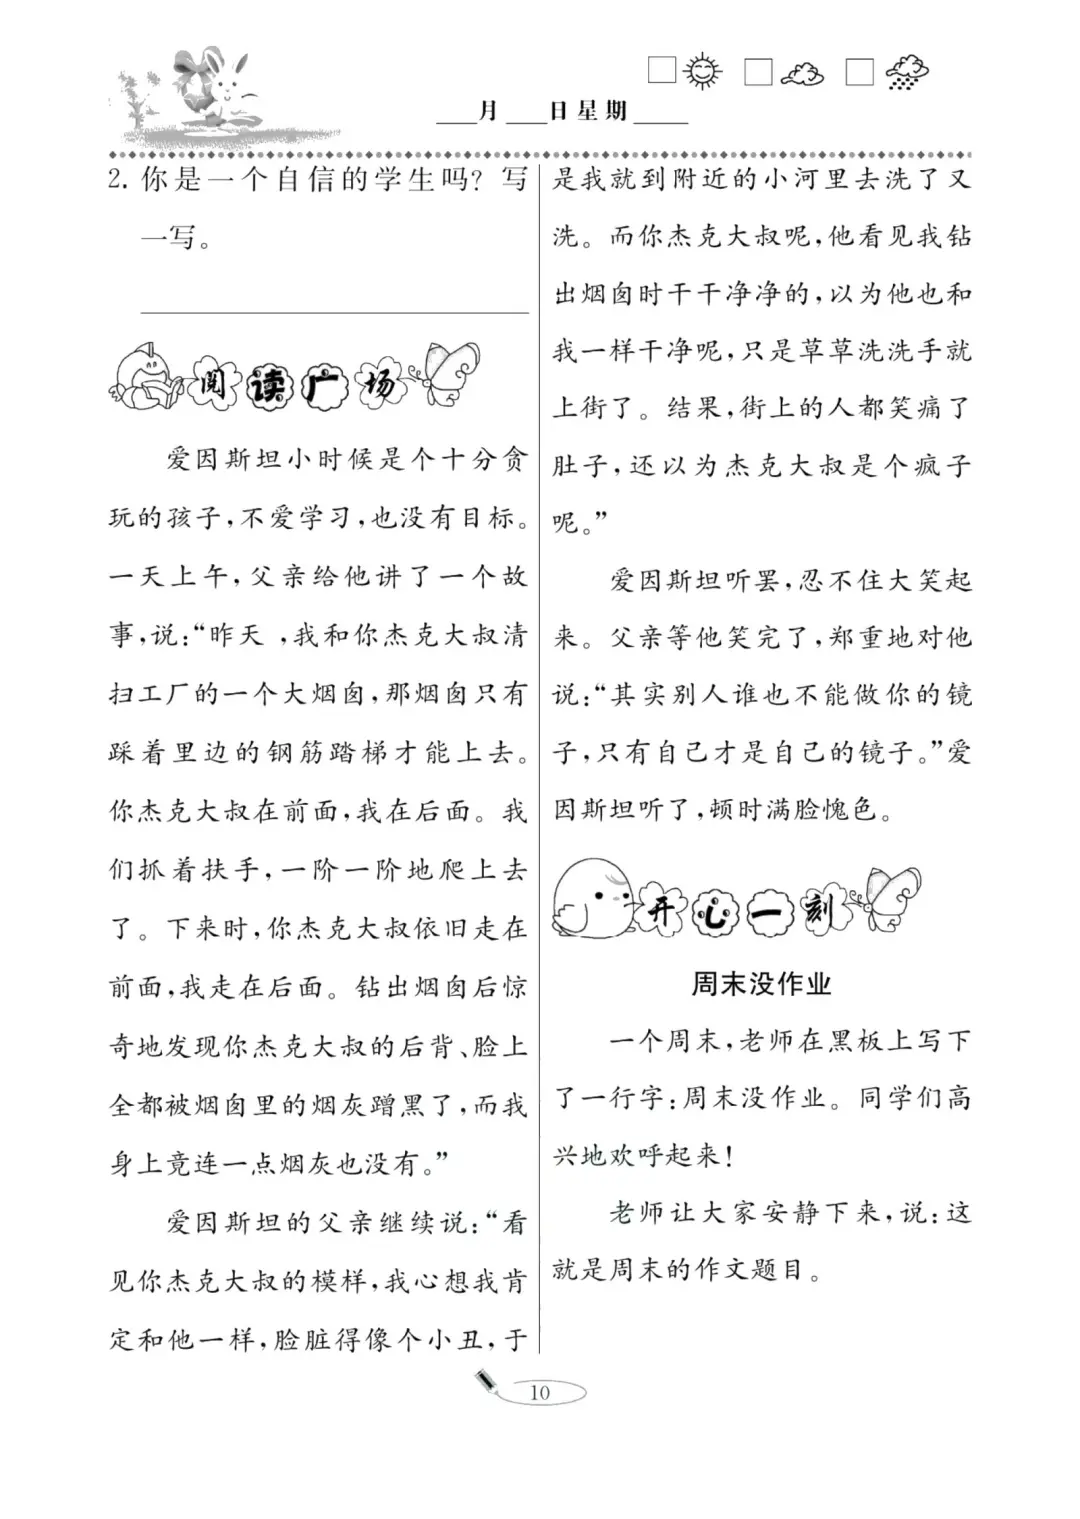 ___月 ___日星期____
2. 你是一个自信的学生吗？写
一写。
阅读广场
爱因斯坦小时候是个十分贪
玩的孩子，不爱学习，也没有目标。
一天上午，父亲给他讲了一个故
事，说：“昨天 ，我和你杰克大叔清
扫工厂的一个大烟囱，那烟囱只有
踩着里边的钢筋踏梯才能上去。
你杰克大叔在前面，我在后面。我
们抓着扶手，一阶一阶地爬上去
了。下来时，你杰克大叔依旧走在
前面，我走在后面。钻出烟囱后惊
奇地发现你杰克大叔的后背、脸上
全都被烟囱里的烟灰蹭黑了，而我
身上竟连一点烟灰也没有。”
爱因斯坦的父亲继续说：“看
见你杰克大叔的模样，我心想我肯
定和他一样，脸脏得像个小丑，于
是我就到附近的小河里去洗了又
洗。而你杰克大叔呢，他看见我钻
出烟囱时干干净净的，以为他也和
我一样干净呢，只是草草洗洗手就
上街了。结果，街上的人都笑痛了
肚子，还以为杰克大叔是个疯子
呢。”
爱因斯坦听罢，忍不住大笑起
来。父亲等他笑完了，郑重地对他
说：“其实别人谁也不能做你的镜
子，只有自己才是自己的镜子。”爱
因斯坦听了，顿时满脸愧色。
开心一刻
周末没作业
一个周末，老师在黑板上写下
了一行字：周末没作业。同学们高
兴地欢呼起来！
老师让大家安静下来，说：这
就是周末的作文题目。
10